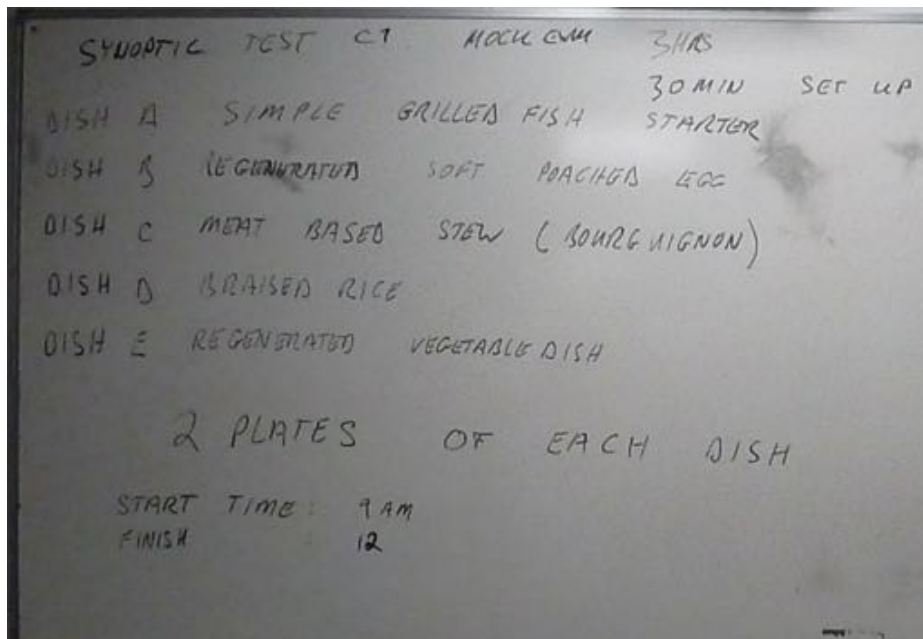 SYNOPTIC TEST C1 MOCK EXM 3HRS
30 MIN SET UP
DISH A SIMPLE GRILLED FISH STARTER
DISH B REGENERATED SOFT POACHED EGG
DISH C MEAT BASED STEW (BOURGUIGNON)
DISH D BRAISED RICE
DISH E REGENERATED VEGETABLE DISH
2 PLATES OF EACH DISH
START TIME: 9 AM
FINISH : 12